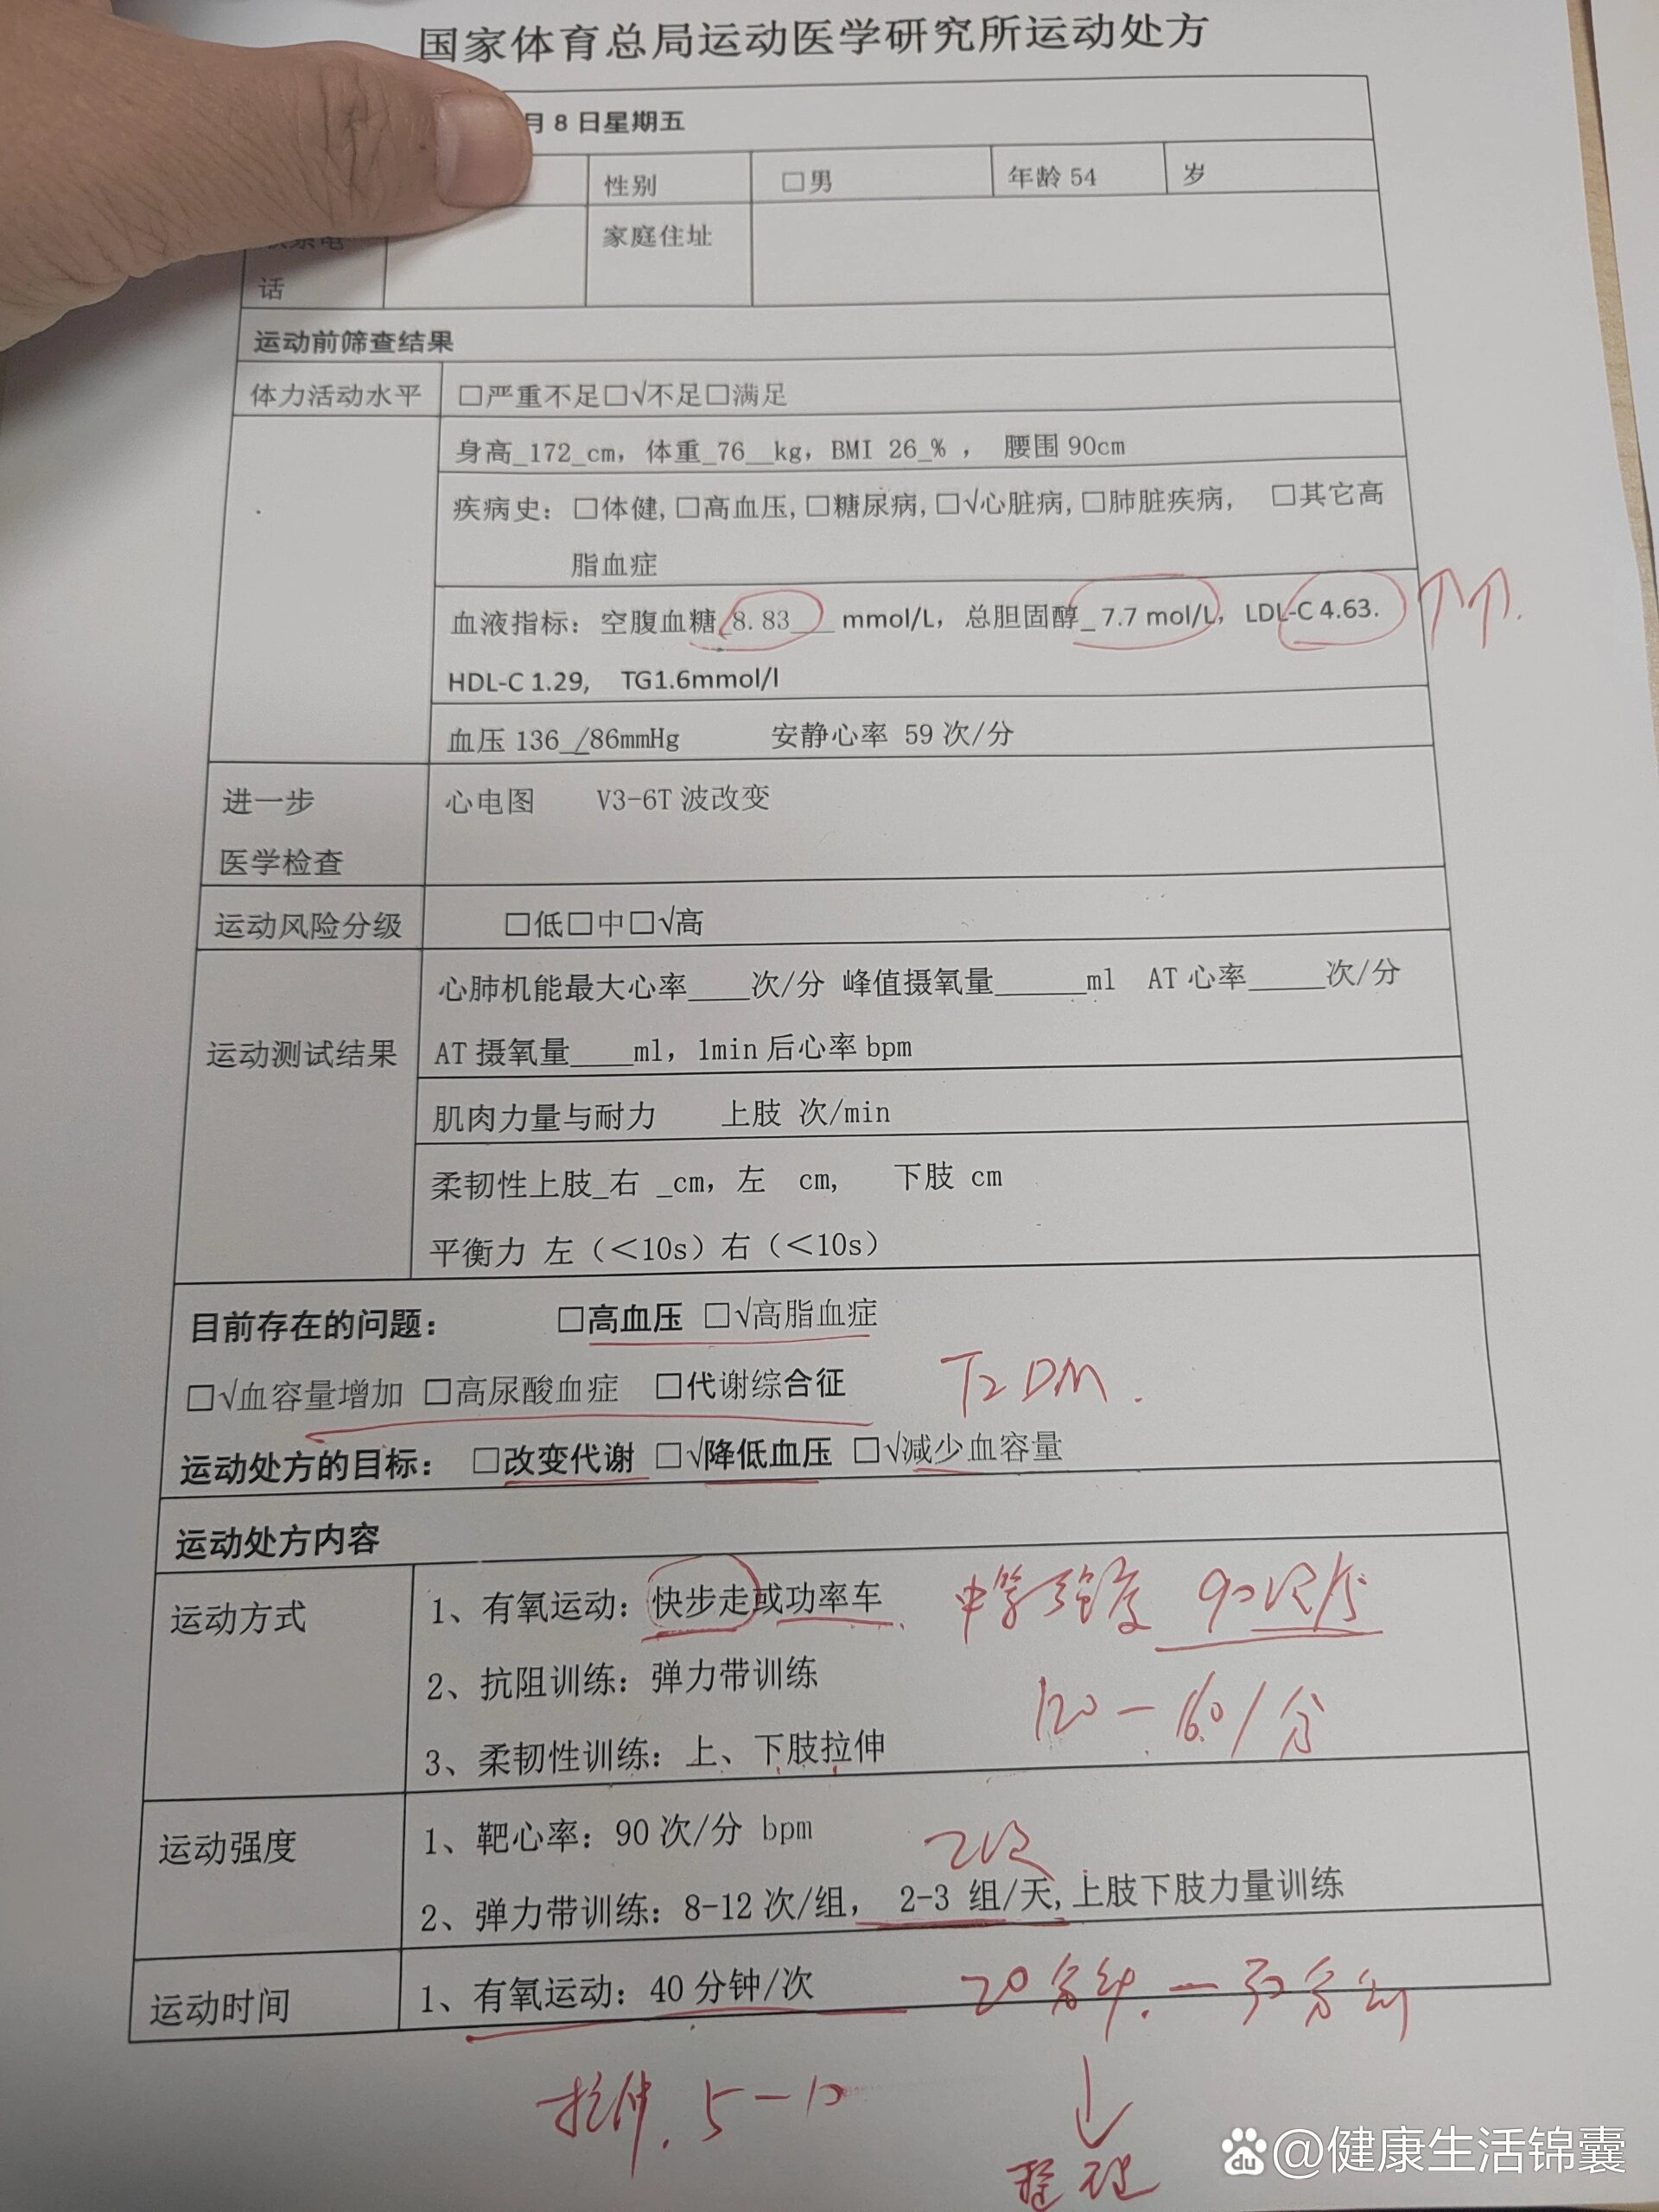 国家体育总局运动医学研究所运动处方
月 8 日星期五
性别 □男 年龄 54 岁
话 家庭住址
运动前筛查结果
体力活动水平 □严重不足□√不足□满足
身高_172_cm，体重_76__kg，BMI 26_%， 腰围 90cm
疾病史：□体健,□高血压,□糖尿病,□√心脏病,□肺脏疾病, □其它高
脂血症
血液指标：空腹血糖_8.83___ mmol/L，总胆固醇_ 7.7 mol/L，LDL-C 4.63. ↑↑.
HDL-C 1.29, TG1.6mmol/l
血压 136_/86mmHg 安静心率 59 次/分
进一步 心电图 V3-6T 波改变
医学检查
运动风险分级 □低□中□√高
心肺机能最大心率____次/分 峰值摄氧量______ml AT 心率_____次/分
运动测试结果 AT 摄氧量____ml，1min 后心率 bpm
肌肉力量与耐力 上肢 次/min
柔韧性上肢_右 _cm，左 cm, 下肢 cm
平衡力 左（＜10s）右（＜10s）
目前存在的问题： □高血压 □√高脂血症
□√血容量增加 □高尿酸血症 □代谢综合征 T2DM.
运动处方的目标： □改变代谢 □√降低血压 □√减少血容量
运动处方内容
运动方式 1、有氧运动：快步走或功率车 中等强度 90次/分
2、抗阻训练：弹力带训练 120－160/分
3、柔韧性训练：上、下肢拉伸
运动强度 1、靶心率：90 次/分 bpm
2次
2、弹力带训练：8-12 次/组， 2-3 组/天,上肢下肢力量训练
运动时间 1、有氧运动：40 分钟/次 20分钟.－30分钟
拉伸.5－10 ↓
整理
@健康生活锦囊